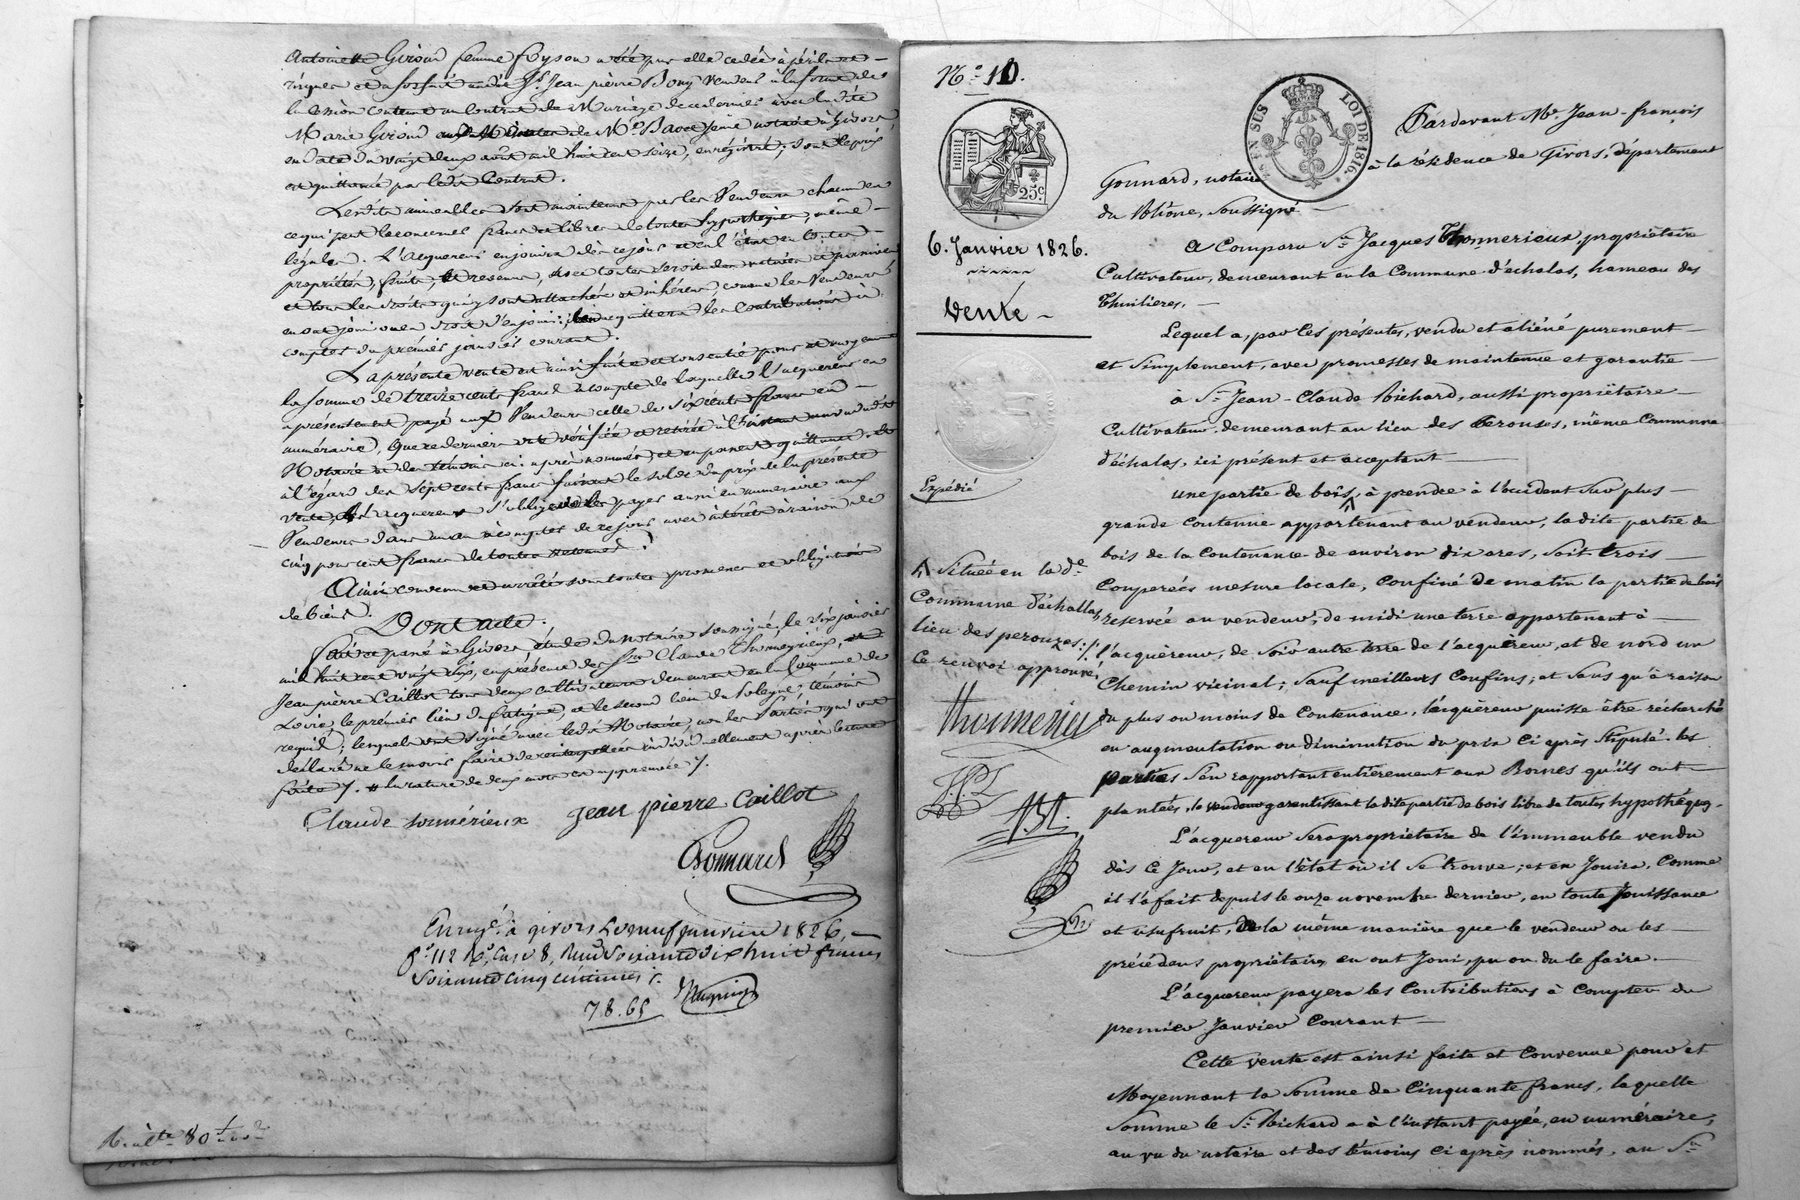 Antoinette Giroud femme Foyson a été par elle cédée à périls et
risques et à forfait audit Sr. Jean pierre Bony vendeur à la forme de
la cession contenue au Contrat de Mariage de ce dernier avec ladite
Marie Giroud aux Minutes de Me. notaire à Givors
en date du vingt deux août mil huit cent seize, enregistré; dont le prix
est quittancé par ledit Contrat.
Lesdits immeubles sont maintenus par les Vendeurs chacun en
ce qui peut le concerner francs et libres de toutes hypothèques, même
légales. L'acquereur en jouira dès ce jour et en l'état en toute
propriété, fruits, et revenus, avec toutes servitudes actives et passives
et tous les droits qui y sont attachés et inhérens, comme les Vendeurs
en ont joui ou eu droit d'en jouir; il en acquittera les contributions à
compter du premier janvier courant.
La présente vente est ainsi faite et consentie pour et moyennant
la somme de treize cents francs à compte de laquelle l'acquereur en
a présentement payé aux Vendeurs celle de six cents francs en
numéraire, que ce dernier ont vérifiée et retirée à l'instant au vu dudit
Notaire et des témoins ci-après nommés et en passent quittance. Et
à l'égard des sept cents francs faisant le solde du prix de la présente
vente, l'acquereur s'oblige de les payer aussi en numéraire aux
Vendeurs dans un an à compter de ce jour avec intérêts à raison de
cinq pour cent francs de toutes retenues.
Ainsi convenu et arrêté sous toutes promesses et obligations
de biens.
Dont acte.
Fait et passé à Givors, étude du notaire soussigné, le six janvier
mil huit cent vingt six, en présence des Srs. Claude Thomérieux, et
Jean pierre Caillot tous deux cultivateurs demeurant en la Commune de
Loire, le premier lieu du et le second lieu du témoins
requis; lesquels ont signé avec ledit Notaire, non les Parties qui ont
déclaré ne le savoir faire de ce interpellées individuellement après lecture
faite /. la rature de deux mots est approuvée /.
Claude tomérieux Jean pierre Caillot
Gonnard
Enregé. à givors le neuf janvier 1826,
fo. 112 Ro. Case 8, Reçu Soixante dix huit francs
soixante cinq centimes /.
78.65
80
No. 10.
25c.
EN SUS
LOI DE 1816.
6. Janvier 1826.
Vente
Expédié
Située en la de
Commune d'échallas,
lieu des perouzes./.
ce renvoi approuvé
thomnerieu
Pardevant Me. Jean-françois
Gonnard, notaire à la résidence de Givors, département
du Rhône, soussigné
A Comparu Sr. Jacques Thomnerieux, propriétaire
Cultivateur, demeurant en la Commune d'échalas, hameau des
Thuilieres.
Lequel a, par ces présentes, vendu et aliéné purement
et simplement, avec promesses de maintenue et garantie
à Sr. Jean-Claude Richard, aussi propriétaire
Cultivateur demeurant au lieu des Perouses, même Commune
d'échalas, ici présent et acceptant
une partie de bois, à prendre à l'occident sur plus
grande contenue appartenant au vendeur, la dite partie de
bois de la contenance de environ dix ares, soit trois
Couperées mesure locale, confiné de matin la partie de bois
réservée au vendeur; de midi une terre appartenant à
l'acquéreur, de soir autre terre de l'acquéreur, et de nord un
Chemin vicinal; sauf meilleurs confins; et sans qu'à raison
du plus ou moins de contenance, l'acquéreur puisse être récherché
en augmentation ou diminution du prix ci après stipulé. les
parties s'en rapportant entièrement aux Bornes qu'ils ont
plantées, le vendeur garentissant la dite partie de bois libre de toutes hypothéques.
L'acquereur sera propriétaire de l'immeuble vendu
dès ce jour, et en l'état où il se trouve; et en jouira, comme
il l'a fait depuis le onze novembre dernier, en toute jouissance
et usufruit, de la même manière que le vendeur ou les
précédens propriétaires en ont joui, pu ou du le faire.
L'acquereur payera les contributions à compter du
premier janvier courant
Cette vente est ainsi faite et convenue pour et
Moyennant la somme de cinquante francs, laquelle
somme le Sr. Richard a à l'instant payée, en numéraire,
au vu du notaire et des témoins ci après nommés, au Sr.